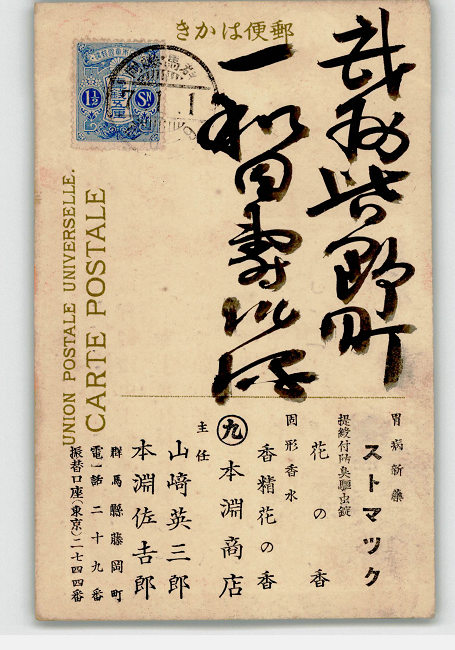 郵便はかき
武州皆野町
一 和田壽
胃病新藥
ストマツク
提綬付防臭驅虫錠
花の香
固形香水
香精花の香
九 本淵商店
主任
山﨑英三郎
本淵佐吉郎
群馬縣藤岡町
電話二十九番
振替口座(東京)二七四四番
UNION POSTALE UNIVERSELLE.
CARTE POSTALE
1½ Sn
7 1 1